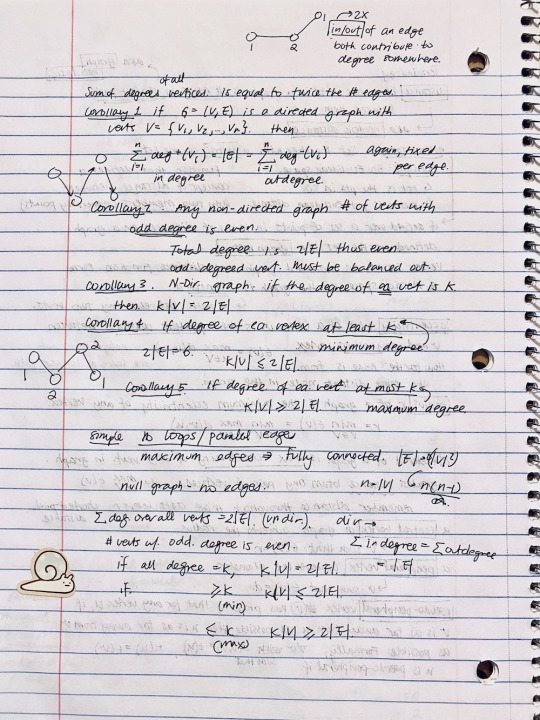 →2x
in/out of an edge
both contribute to
degree somewhere.
1 2 1
of all
Sum of degrees vertices is equal to twice the # edges.
Corollary 1 if G = (V, E) is a directed graph with
verts V = {V₁, V₂, .., Vₙ}. then
n Σ i=1 deg⁺(Vᵢ) = |E| = n Σ i=1 deg⁻(Vᵢ) again, fixed
in degree outdegree per edge.
Corollary 2 Any non-directed graph # of verts with
odd degree is even.
Total degree is 2|E| thus even.
odd-degreed vert. must be balanced out.
Corollary 3. N-Dir graph, if the degree of ea vert is K
then K|V| = 2|E|
Corollary 4 If degree of ea vertex at least K
2|E| = 6. minimum degree
K|V| ≤ 2|E|
1 2 2 1
Corollary 5 If degree of ea vert at most K
K|V| ≥ 2|E| maximum degree
Simple no loops/parallel edges
maximum edges ⇒ Fully connected. |E|
n=|V| n(n-1)
null graph - no edges.
Σ deg over all verts = 2|E|. (un dir). dir →
# verts w/ odd. degree is even. Σ in degree = Σ outdegree
if all degree = K, K|V| = 2|E|. = |E|
if. ≥K K|V| ≤ 2|E|
(min)
≤ K K|V| ≥ 2|E|
(max)